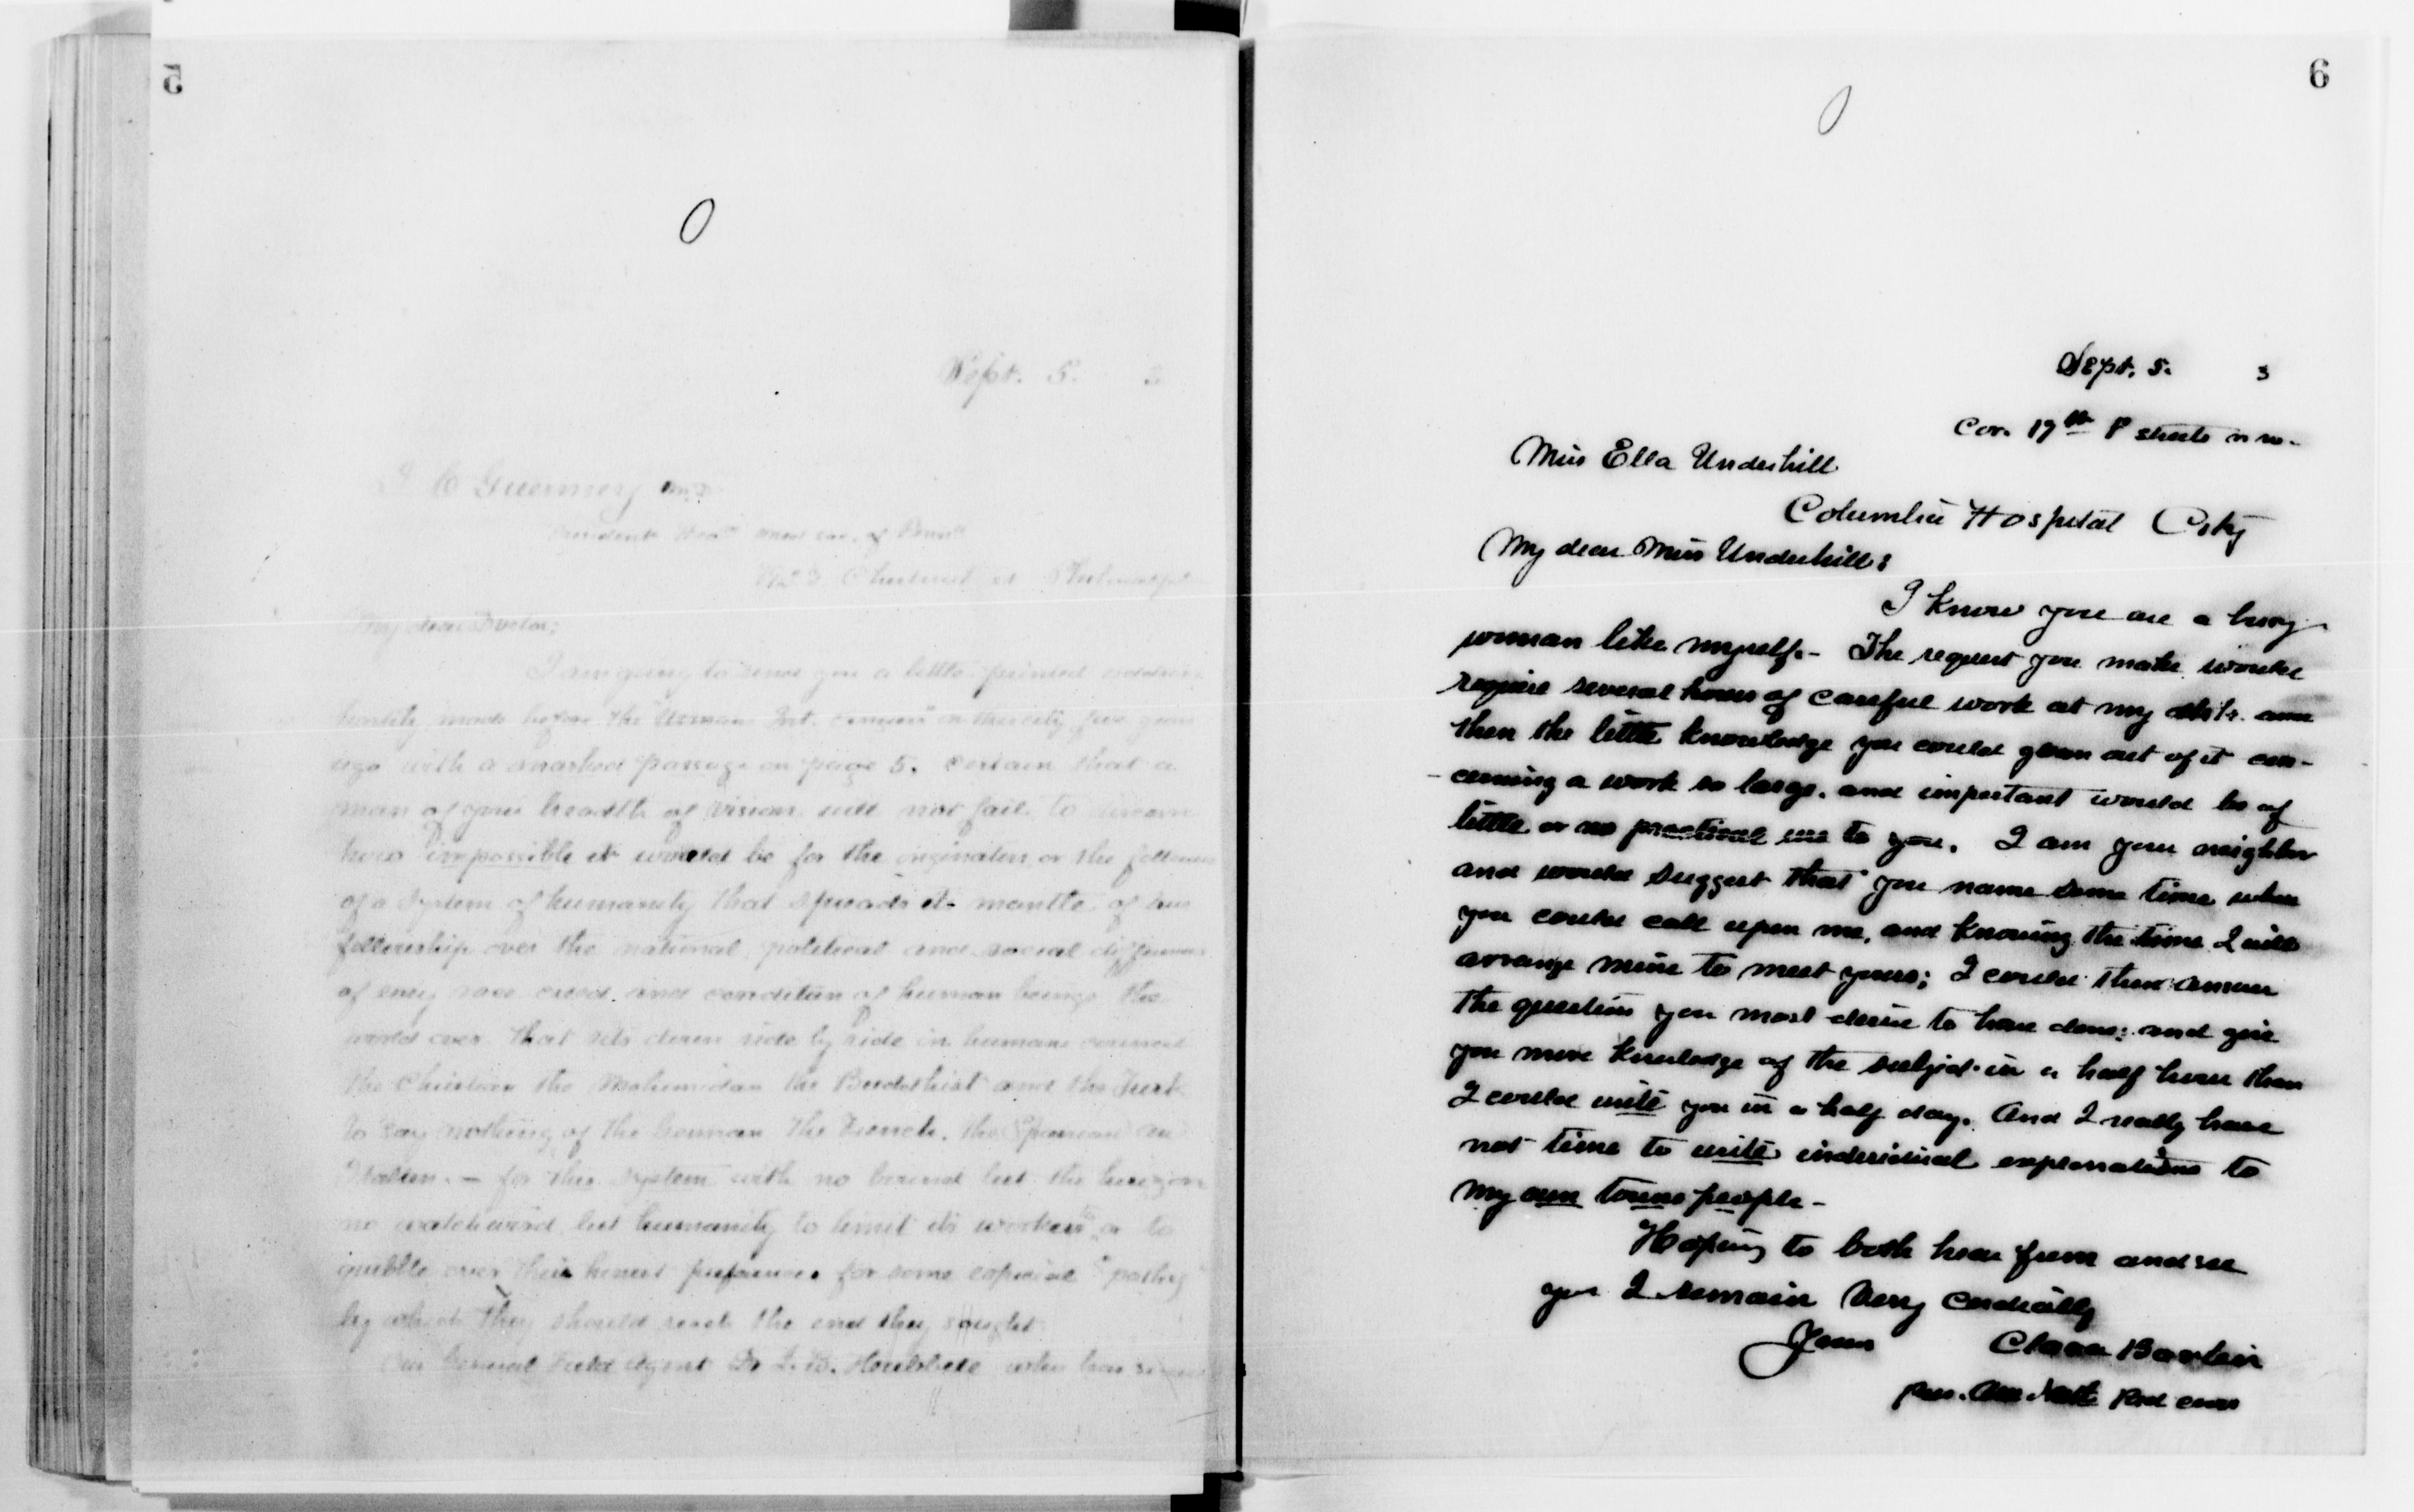 5
Sept. 5. 3
J C Guernsey M.D.
President Med Soc. of Penna
1923 Chestnut st
My dear Doctor;
I am going to send you a little printed address
hastily made before the "Woman's Int. Council" in this city five years
ago with a marked passage on page 5. Certain that a
man of your breadth of vision will not fail to discern
how impossible it would be for the originators or the followers
of a system of humanity that spreads its mantle of true
fellowship over the national, political and social differences
of every race creed and condition of human beings the
world over. That sits down side by side in humane council
the Christian the Mohamedan the Buddhist and the Turk
to say nothing of the German the French, the Spaniard
Italian. — for this system with no bound but the horizon
no watchword but humanity to limit its workers or to
quibble over their honest preferences for some especial "pathy"
by which they should reach the end they sought
Our General Field Agent Dr J. B. Hubbell who has
6
Sept. 5. 3
Cor. 17th F streets n w.
Miss Ella Underhill
Columbia Hospital City
My dear Miss Underhill:
I know you are a busy
woman like myself. - The request you make would
require several hours of careful work at my desk and
then the little knowledge you could glean out of it con-
cerning a work so large, and important would be of
little or no practical use to you. I am your neighbor
and would suggest that you name some time when
you could call upon me, and knowing the time I will
arrange mine to meet yours; I could then answer
the questions you most desire to have done; and give
you more knowledge of the subject in a half hour than
I could write you in a half day. And I really have
not time to write individual explanations to
my own towns people -
Hoping to both hear from and see
you I remain Very cordially
Yours Clara Barton
Pres. Am Natl Red Cross